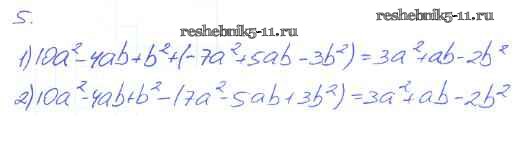 5.
reshebnik5.ru
reshebnik5.ru
1) 10a²-4ab+b²+(-7a²+5ab-3b²)=3a²+ab-2b²
2) 10a²-4ab+b²-(7a²-5ab+3b²)=3a²+ab-2b²